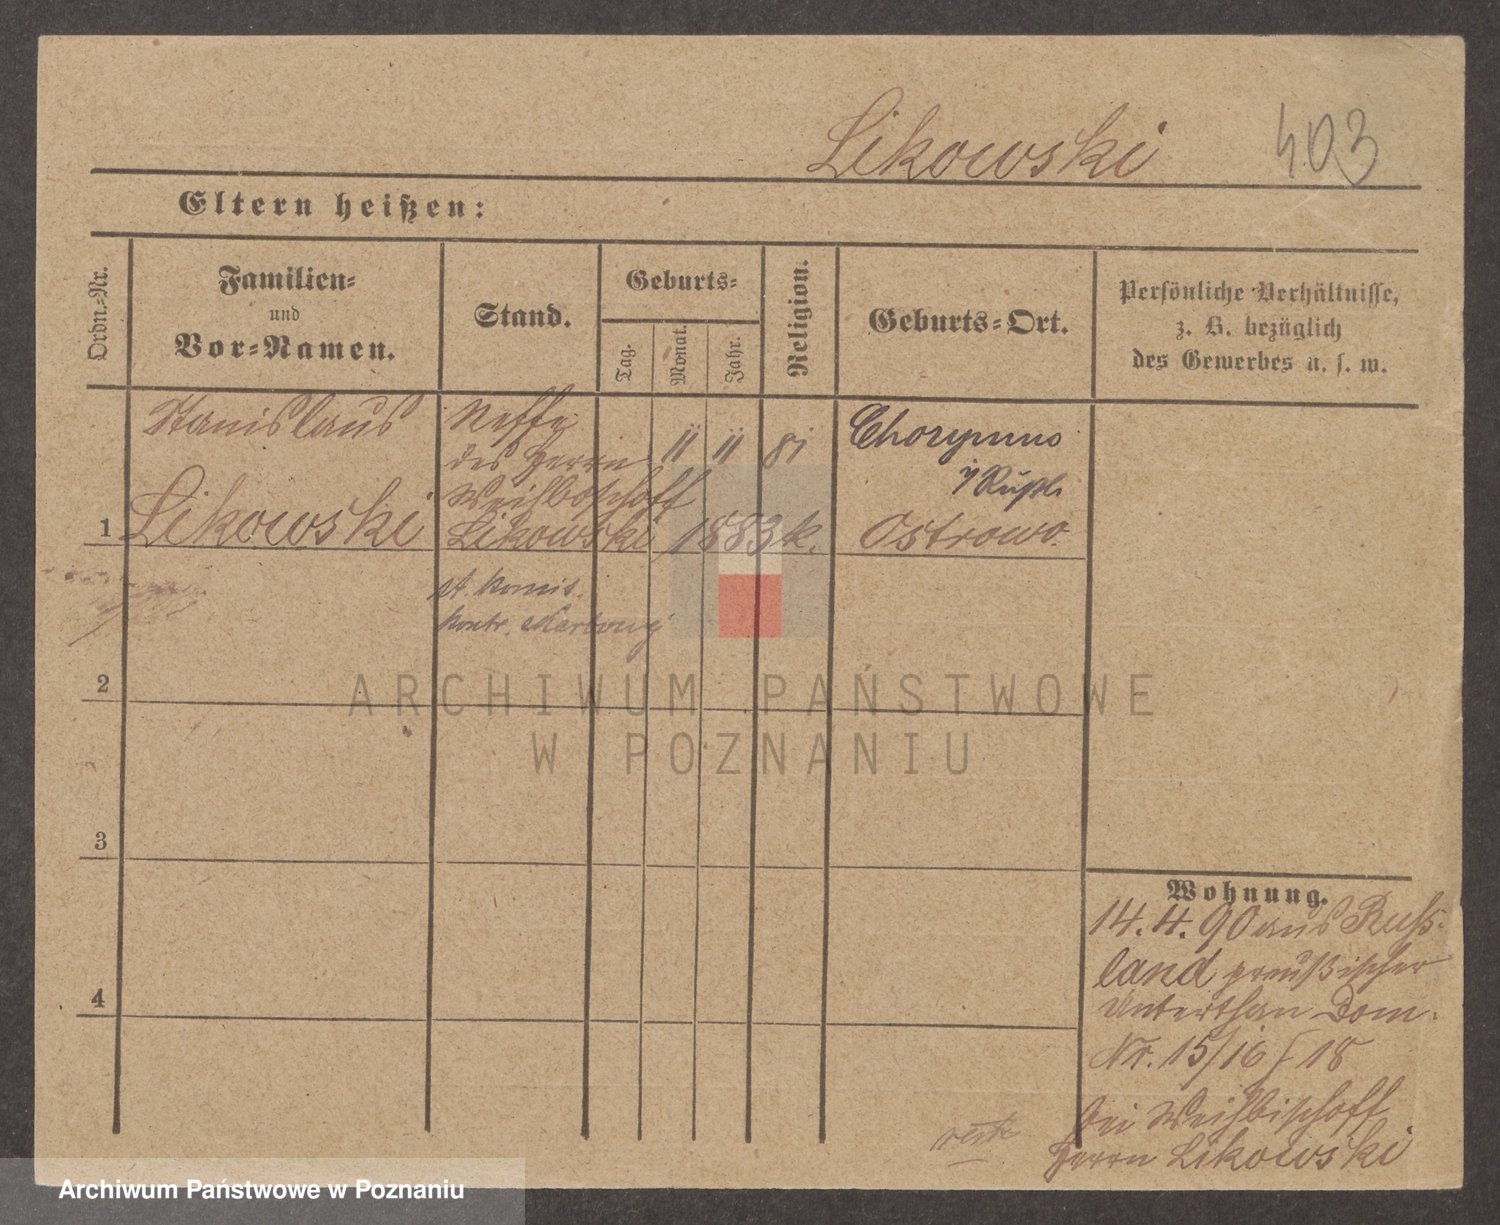 Likowski 403
Eltern heißen:
Ordn.-Nr.
Familien-
und
Vor-Namen.
Stand.
Geburts-
Tag.
Monat.
Jahr.
Religion.
Geburts-Ort.
Persönliche Verhältnisse,
z. B. bezüglich
des Gewerbes u. s. w.
1
Stanislaus
Likowski
Neffe
des Herrn
Weihbischoff
Likowski
11 11 81
1883 k.
Ostrowo.
2
3
4
Wohnung.
14.4.90 aus Ruß-
land preußischer
Unterthan Dom-
Nr. 15/16 / 18
bei Weihbischoff
Herrn Likowski
ARCHIWUM PAŃSTWOWE
W POZNANIU
Archiwum Państwowe w Poznaniu